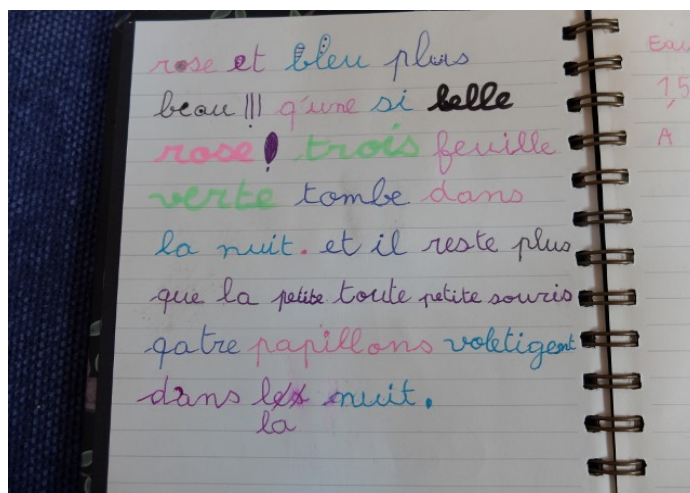 rose et bleu plus
beau !!! q'une si belle
rose ! trois feuille
verte tombe dans
la nuit. et il reste plus
que la petite toute petite souris
qatre papillons voletigent
dans la nuit.
Eau
1,5
A